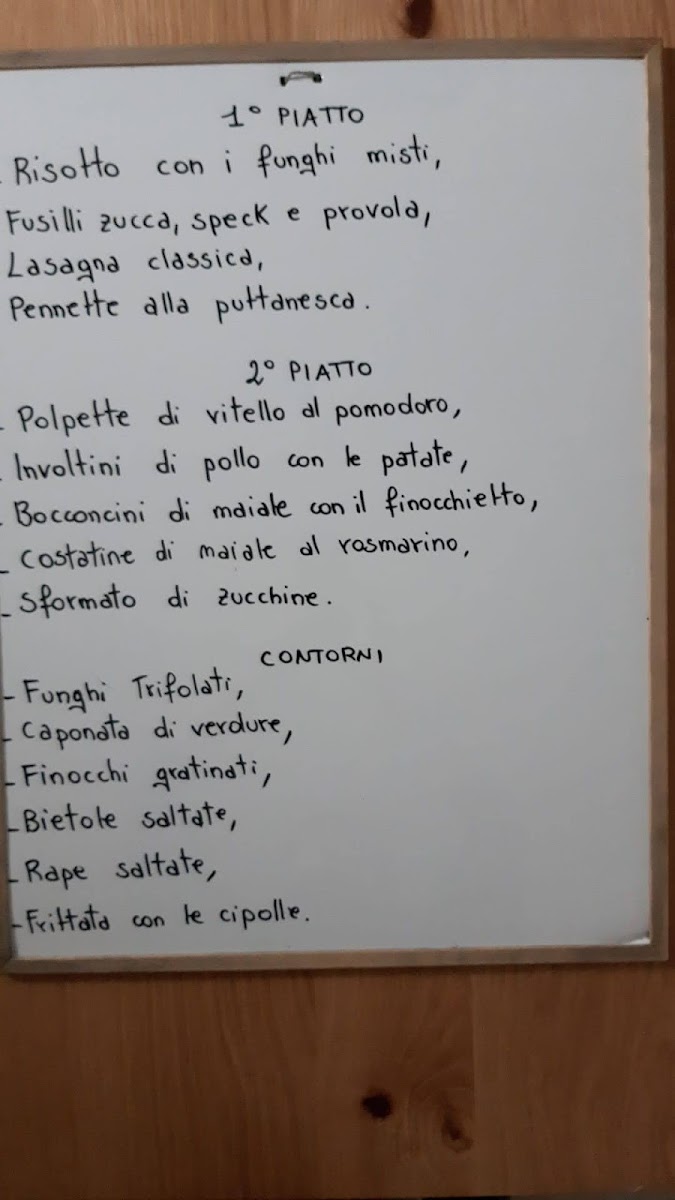 1° PIATTO
- Risotto con i funghi misti,
Fusilli zucca, speck e provola,
Lasagna classica,
Pennette alla puttanesca.
2° PIATTO
- Polpette di vitello al pomodoro,
- Involtini di pollo con le patate,
- Bocconcini di maiale con il finocchietto,
- Costatine di maiale al rosmarino,
- Sformato di zucchine.
CONTORNI
- Funghi Trifolati,
- Caponata di verdure,
- Finocchi gratinati,
- Bietole saltate,
- Rape saltate,
- Frittata con le cipolle.